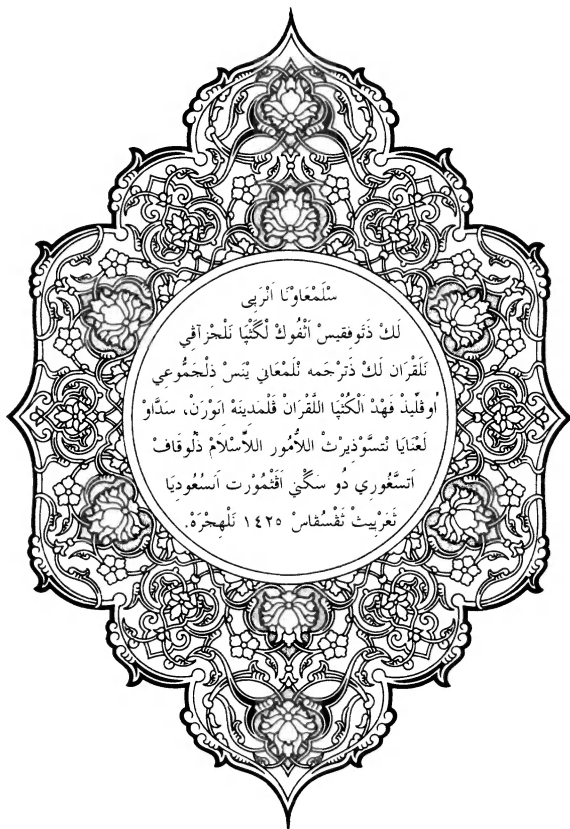 سْلَمْعَاوْنَا اَنْرَبِّي
لَكْ ذَتَوفِقِيسْ اَثْفُوكْ لْكَثْبَا نَلْجْزآفِي
نَلَقْرَان لَكْ ذَتَرْجَمَه نُلَمْعَانِي يْنَسْ ذِلْجَمُّوعِي
اُوقْلِّيذْ فَهْدْ اَلْكُثْبَا اللَّقْرَانْ قَلْمَدِينَة اِنَورَنْ، سَدَّاوْ
لَعْنَايَا نْتسَّوْذِيرِثْ اللاُّمُور اللاَّسْلَامْ ذَلُوقَافْ
اَتسَّغُورِي دُو سَكْنِي اَقَثْمُورْت اَسُعُودِيَا
ثَعْرَبِيثْ ثَقْسُقَّاسْ ١٤٢٥ نَلْهِجْرَهْ.